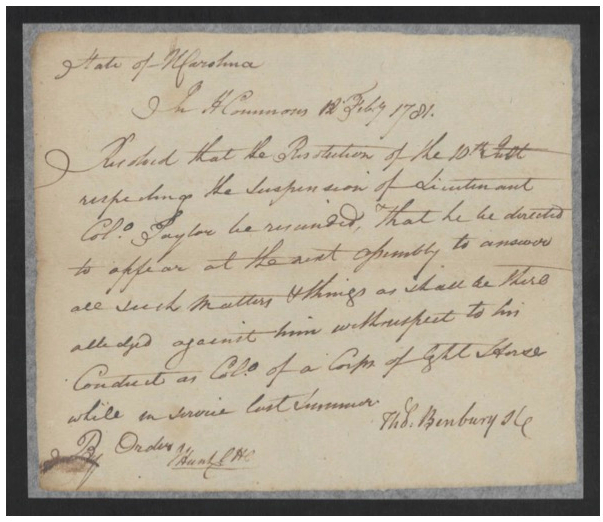 State of NCarolina
In H Commons 12th Feby 1781.
Resolved that the Resolution of the 10th Inst
respecting the Suspension of Lieutenant
Colo. Taylor be rescinded, That he be directed
to appear at the next Assembly to answer
all such Matters & things as shall be there
alledged against him with respect to his
Conduct as Colo. of a Corps of light Horse
while in service last Summer
Tho. Benbury
By Order
J Hunt C HC